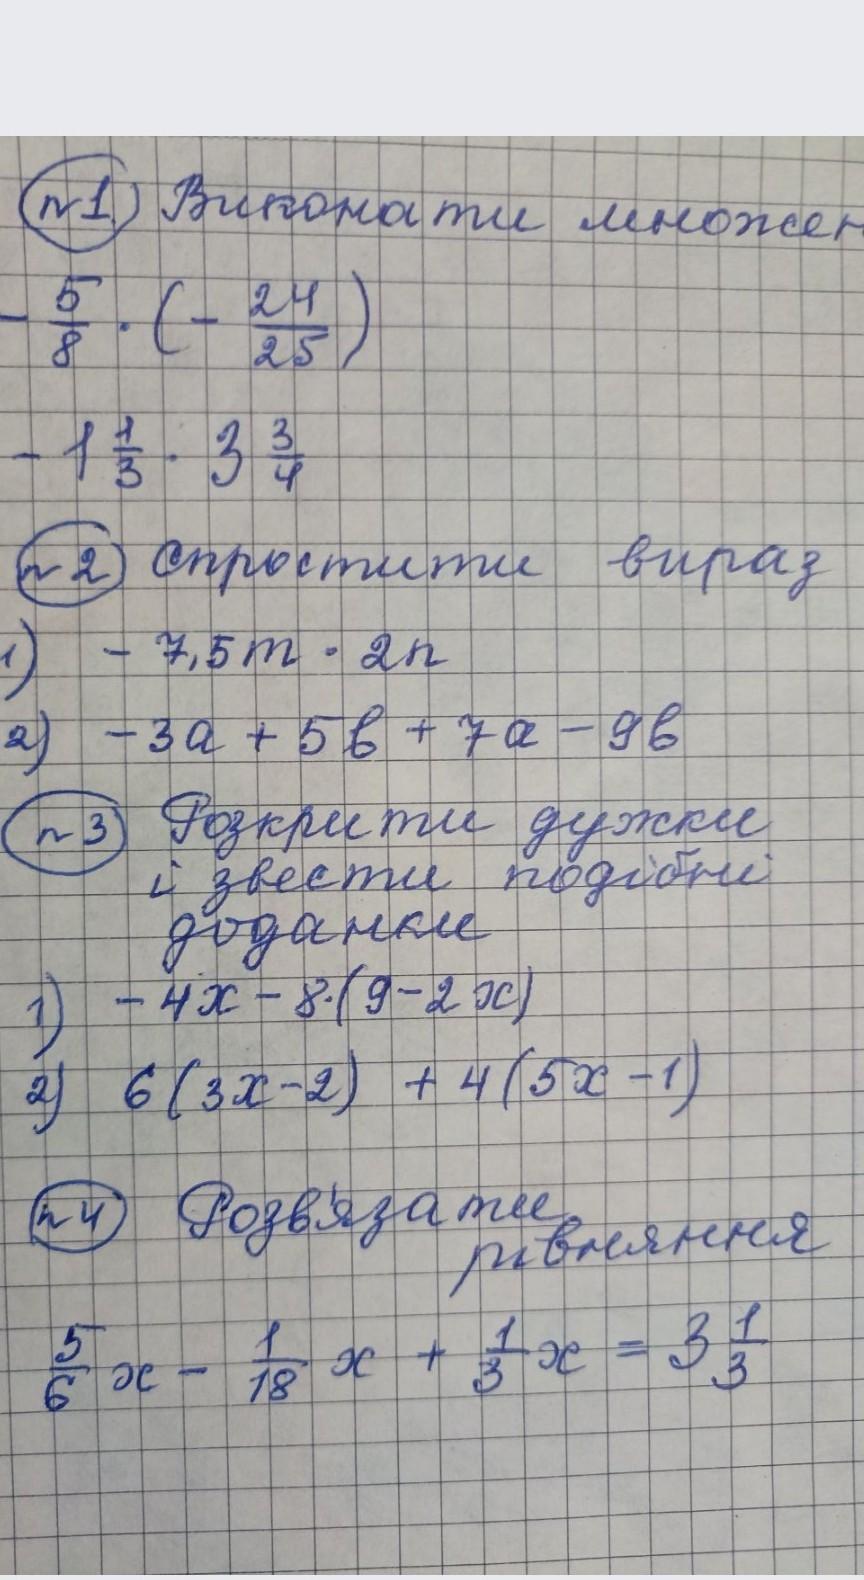 №1 Виконати множен
- 5/8 · (- 24/25)
- 1 1/3 · 3 3/4
№2 Спростити вираз
1) - 7,5m · 2n
2) - 3a + 5b + 7a - 9b
№3 Розкрити дужки
і звести подібні
доданки
1) - 4x - 8·(9 - 2x)
2) 6(3x - 2) + 4(5x - 1)
№4 Розв'язати
рівняння
5/6 x - 1/18 x + 1/3 x = 3 1/3